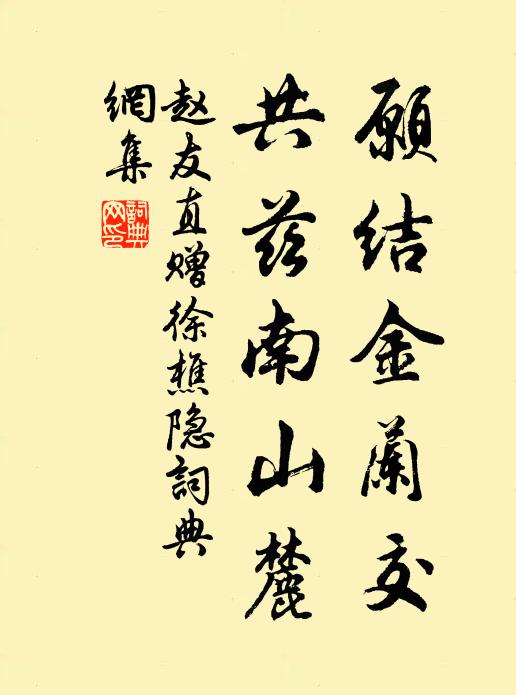 願结金蘭交
共兹南山麓
赵友直赠徐樵隐詞典
網集
詞典網印